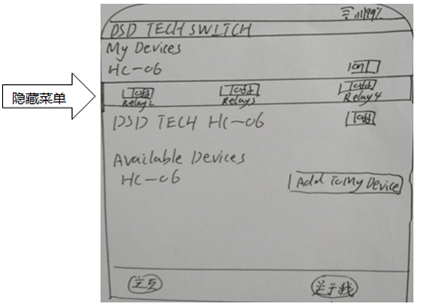 99%
DSD TECH SWITCH
My Devices
HC-06 on
隐藏菜单
off off off
Relay2 Relay3 Relay4
DSD TECH HC-06 off
Available Devices
HC-06 Add To My Device
主页 关于我